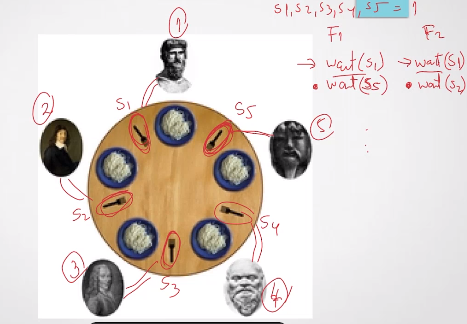 S1, S2, S3, S4, S5 = 1
F1 F2
→ wait(S1) → wait(S1)
• wait(S5) • wait(S2)
1
S1 S5
2
5
S2
S4
3
S3
4